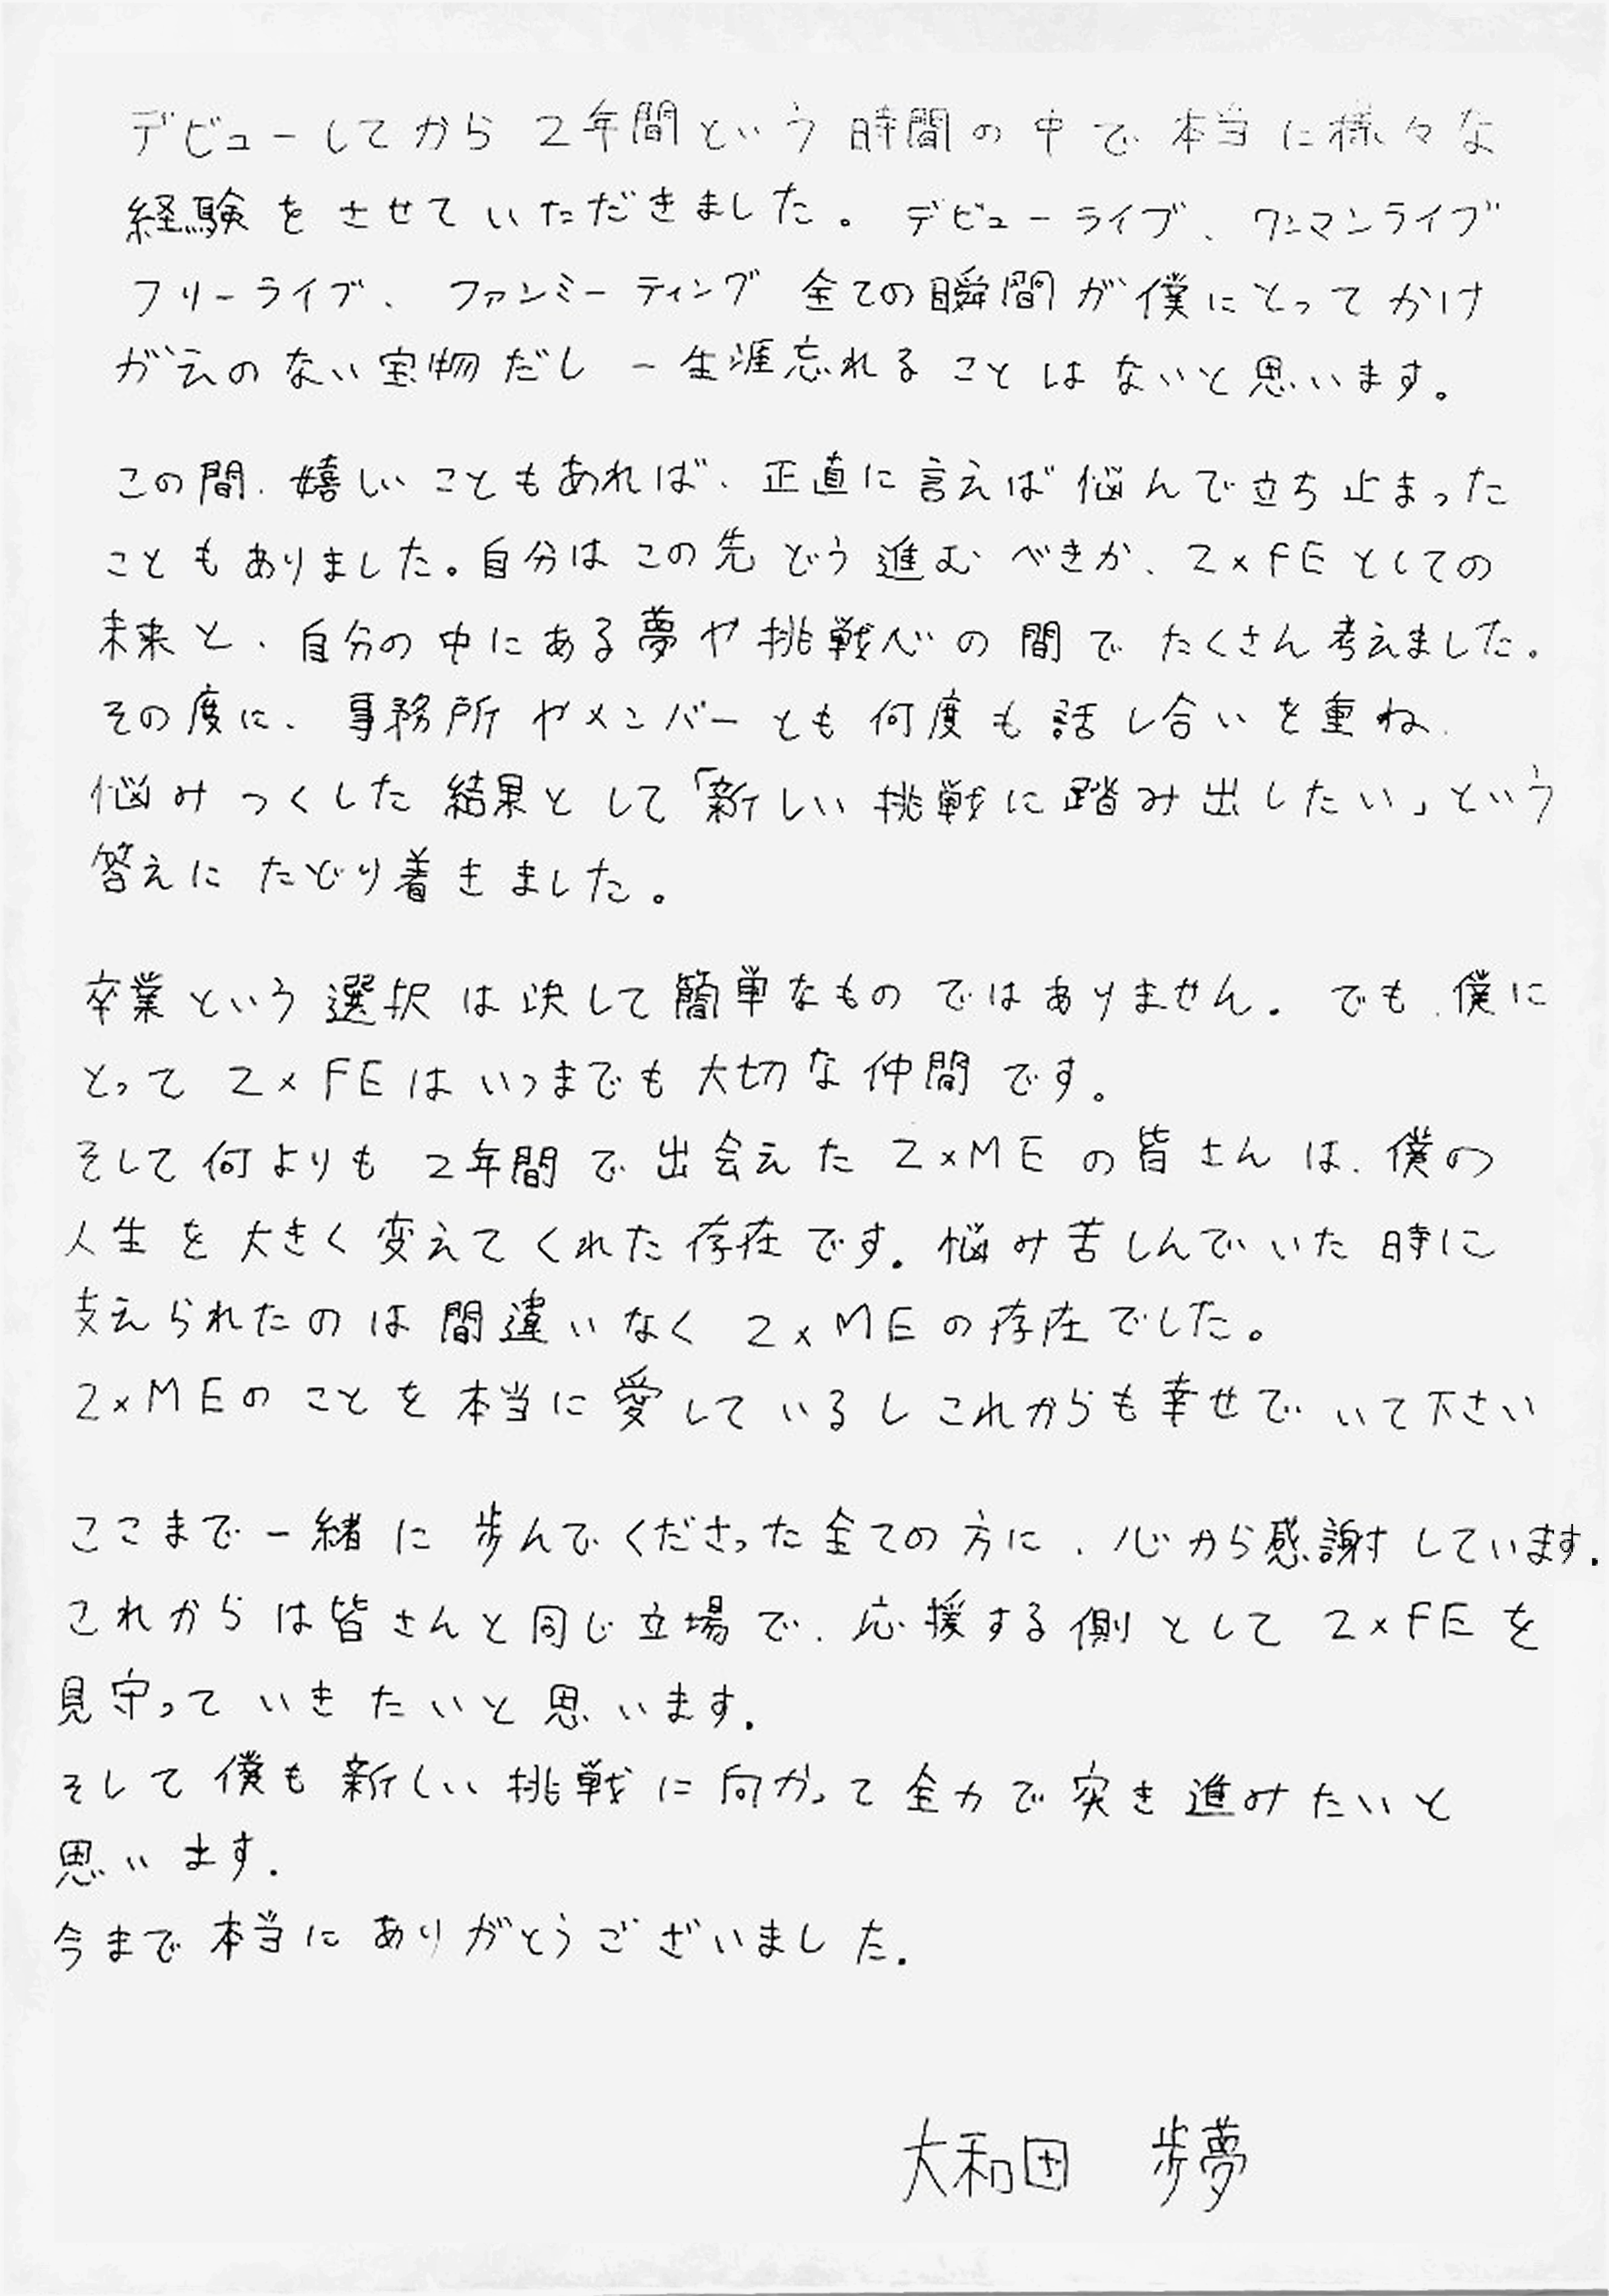 デビューしてから2年間という時間の中で本当に様々な
経験をさせていただきました。デビューライブ、ワンマンライブ
フリーライブ、ファンミーティング 全ての瞬間が僕にとってかけ
がえのない宝物だし一生涯忘れることはないと思います。
この間、嬉しいこともあれば、正直に言えば悩んで立ち止まった
こともありました。自分はこの先どう進むべきか、2×FEとしての
未来と、自分の中にある夢や挑戦心の間でたくさん考えました。
その度に、事務所やメンバーとも何度も話し合いを重ね、
悩みつくした結果として「新しい挑戦に踏み出したい」という
答えにたどり着きました。
卒業という選択は決して簡単なものではありません。でも、僕に
とって2×FEはいつまでも大切な仲間です。
そして何よりも2年間で出会えた2×MEの皆さんは、僕の
人生を大きく変えてくれた存在です。悩み苦しんでいた時に
支えられたのは間違いなく2×MEの存在でした。
2×MEのことを本当に愛しているしこれからも幸せでいて下さい
ここまで一緒に歩んでくださった全ての方に、心から感謝しています.
これからは皆さんと同じ立場で、応援する側として2×FEを
見守っていきたいと思います.
そして僕も新しい挑戦に向かって全力で突き進みたいと
思います.
今まで本当にありがとうございました.
大和田 歩夢